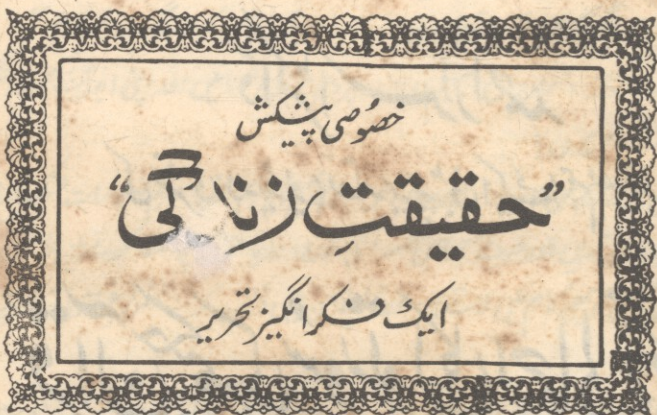 خصوصی پیشکش
"حقیقتِ زندگی"
ایک فکر انگیز تحریر